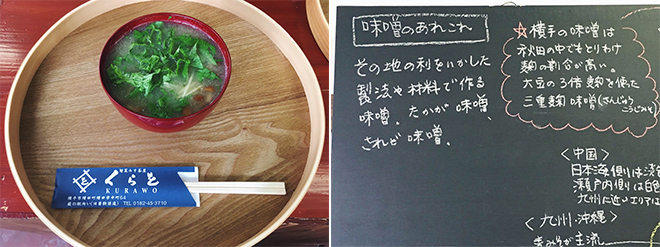 くらを
KURAWO
TEL 0182-45-3710
味噌のあれこれ
その地の利をいかした
製法や材料で作る
味噌。たかが味噌、
されど味噌。
☆横手の味噌は
秋田の中でもとりわけ
麹の割合が高い。
大豆の3倍麹を使った
三重麹味噌(さんじゅう
こうじみそ
<中国>
日本海側は淡色
瀬戸内側は白色
九州に近いエリアは
<九州・沖縄>
主流